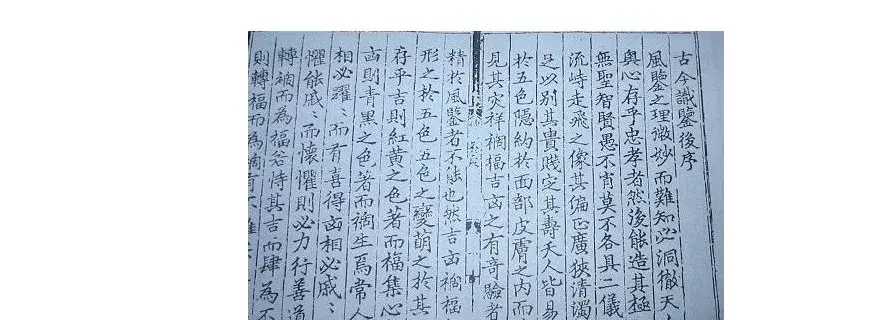 古今識鑒後序
風鑒之理微妙而難知必洞徹天人
奧心存乎忠孝者然後能造其極
無聖智賢愚不肖莫不各具二儀
流峙走飛之像其偏正廣狹清濁
足以別其貴賤定其壽夭人皆易
於五色隱約於面部皮膚之内而
見其灾祥禍福吉凶之有奇驗者
精於風鑒者不能也然吉凶禍福
形之於五色五色之變萌之於其
存乎吉則紅黃之色著而福集心
凶則青黑之色著而禍生焉常人
相必躍〻而有喜得凶相必戚〻
懼能戚〻而懷懼則必力行善道
轉禍而為福若恃其吉而肆為不
則轉福而為禍有不難